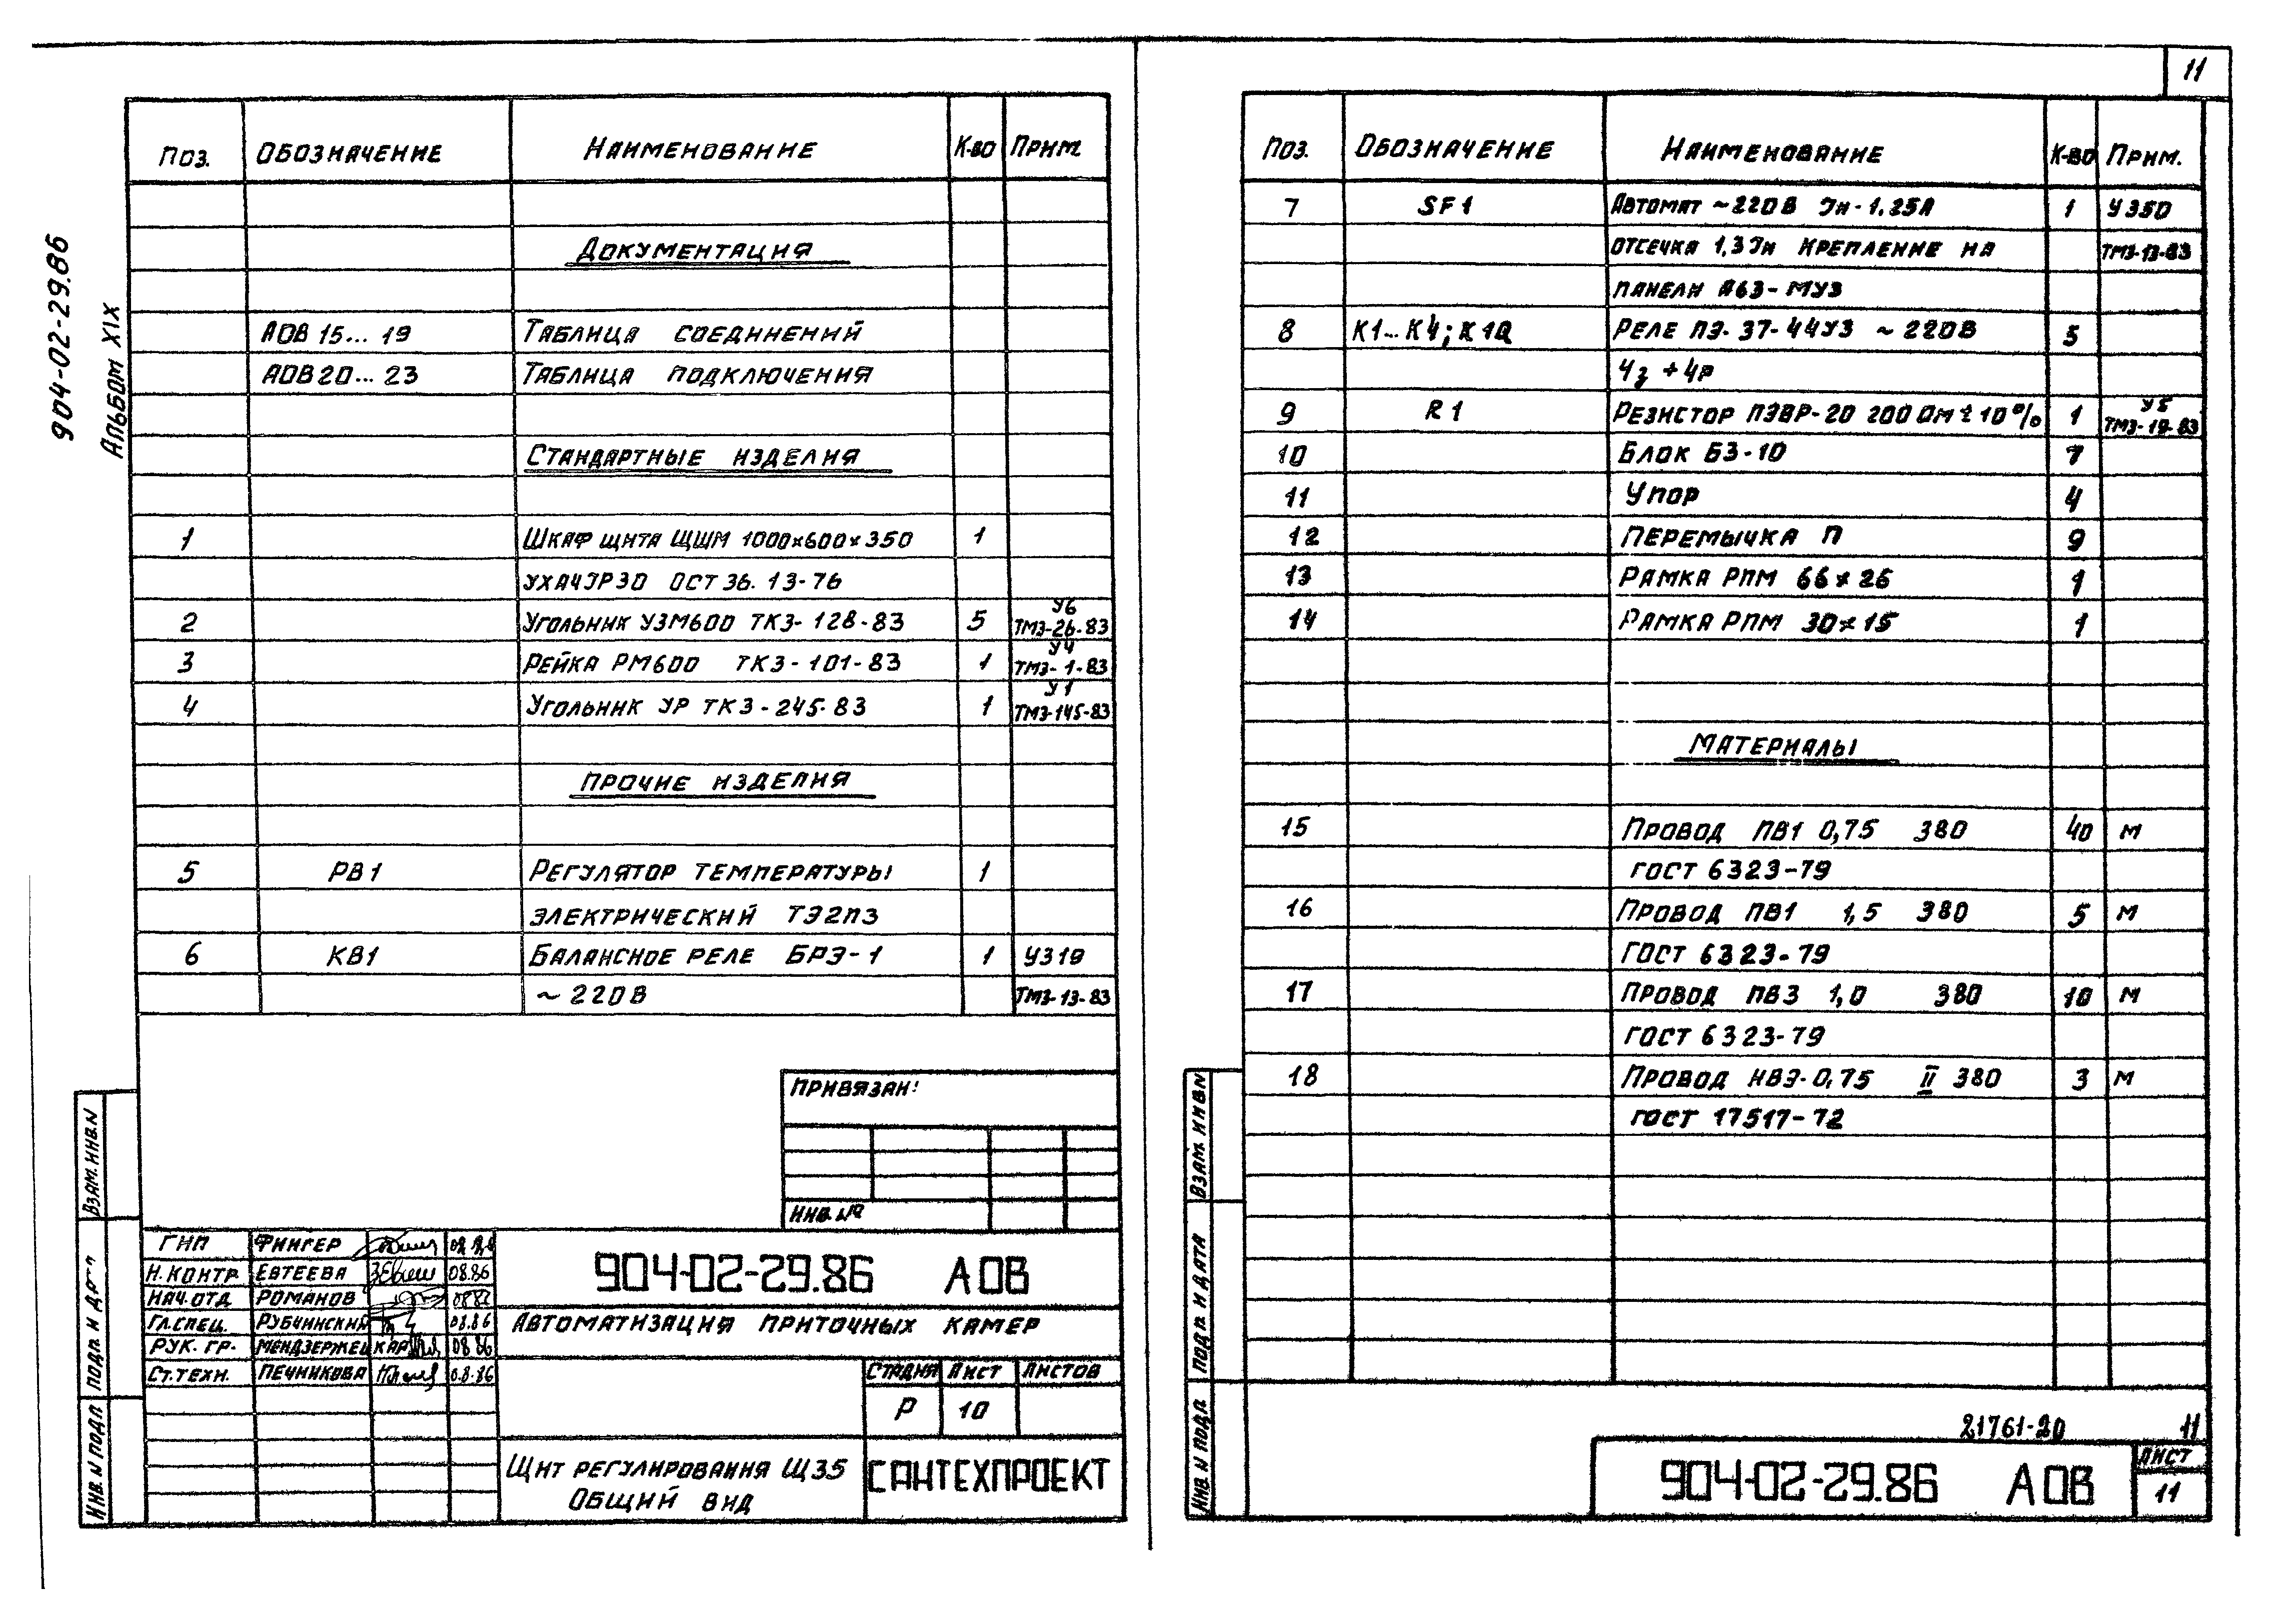 11
904-02-29.86
Альбом XIX
Поз. Обозначение Наименование К-во Прим.
Документация
АОВ 15... 19 Таблица соединений
АОВ 20... 23 Таблица подключения
Стандартные изделия
1 Шкаф щита ЩШМ 1000×600×350 1
УХЛ4 IP30 ОСТ 36.13-76
2 Угольник УЗМ600 ТК3-128-83 5 У6 ТМ3-26-83
3 Рейка РМ600 ТК3-101-83 1 У4 ТМ3-1-83
4 Угольник УР ТК3-245-83 1 У1 ТМ3-145-83
Прочие изделия
5 РВ1 Регулятор температуры 1
электрический ТЭ2П3
6 КВ1 Балансное реле БРЭ-1 1 У319
~ 220В ТМ3-13-83
Привязан:
Инв. №
ГИП Фингер
Н. контр. Евтеева 08.86
Нач. отд Романов
Гл. спец. Рубчинский 08.86
Рук. гр. Мендзержецкая 08.86
Ст. техн. Печникова 08.86
904-02-29.86 АОВ
Автоматизация приточных камер
Стадия Лист Листов
Р 10
Щит регулирования Щ35
Общий вид
САНТЕХПРОЕКТ
Взам. инв. N
Подп. и дата
Инв. N подл
Поз. Обозначение Наименование К-во Прим.
7 SF1 Автомат ~220В Iн-1.25А 1 У350
отсечка 1,3Iн крепление на ТМ3-13-83
панели А63-МУ3
8 К1... К4; К10 Реле ПЭ-37-44У3 ~ 220В 5
4з + 4р
9 R1 Резистор ПЭВР-20 200 Ом ± 10% 1 У5 ТМ3-19-83
10 Блок БЗ-10 7
11 Упор 4
12 Перемычка П 9
13 Рамка РПМ 66×26 1
14 Рамка РПМ 30×15 1
Материалы
15 Провод ПВ1 0,75 380 40 м
ГОСТ 6323-79
16 Провод ПВ1 1,5 380 5 м
ГОСТ 6323-79
17 Провод ПВ3 1,0 380 10 м
ГОСТ 6323-79
18 Провод НВЭ-0,75 II 380 3 м
ГОСТ 17517-72
Взам. инв N
Подп. и дата
Инв. N подл.
21761-20 11
904-02-29.86 АОВ
Лист
11